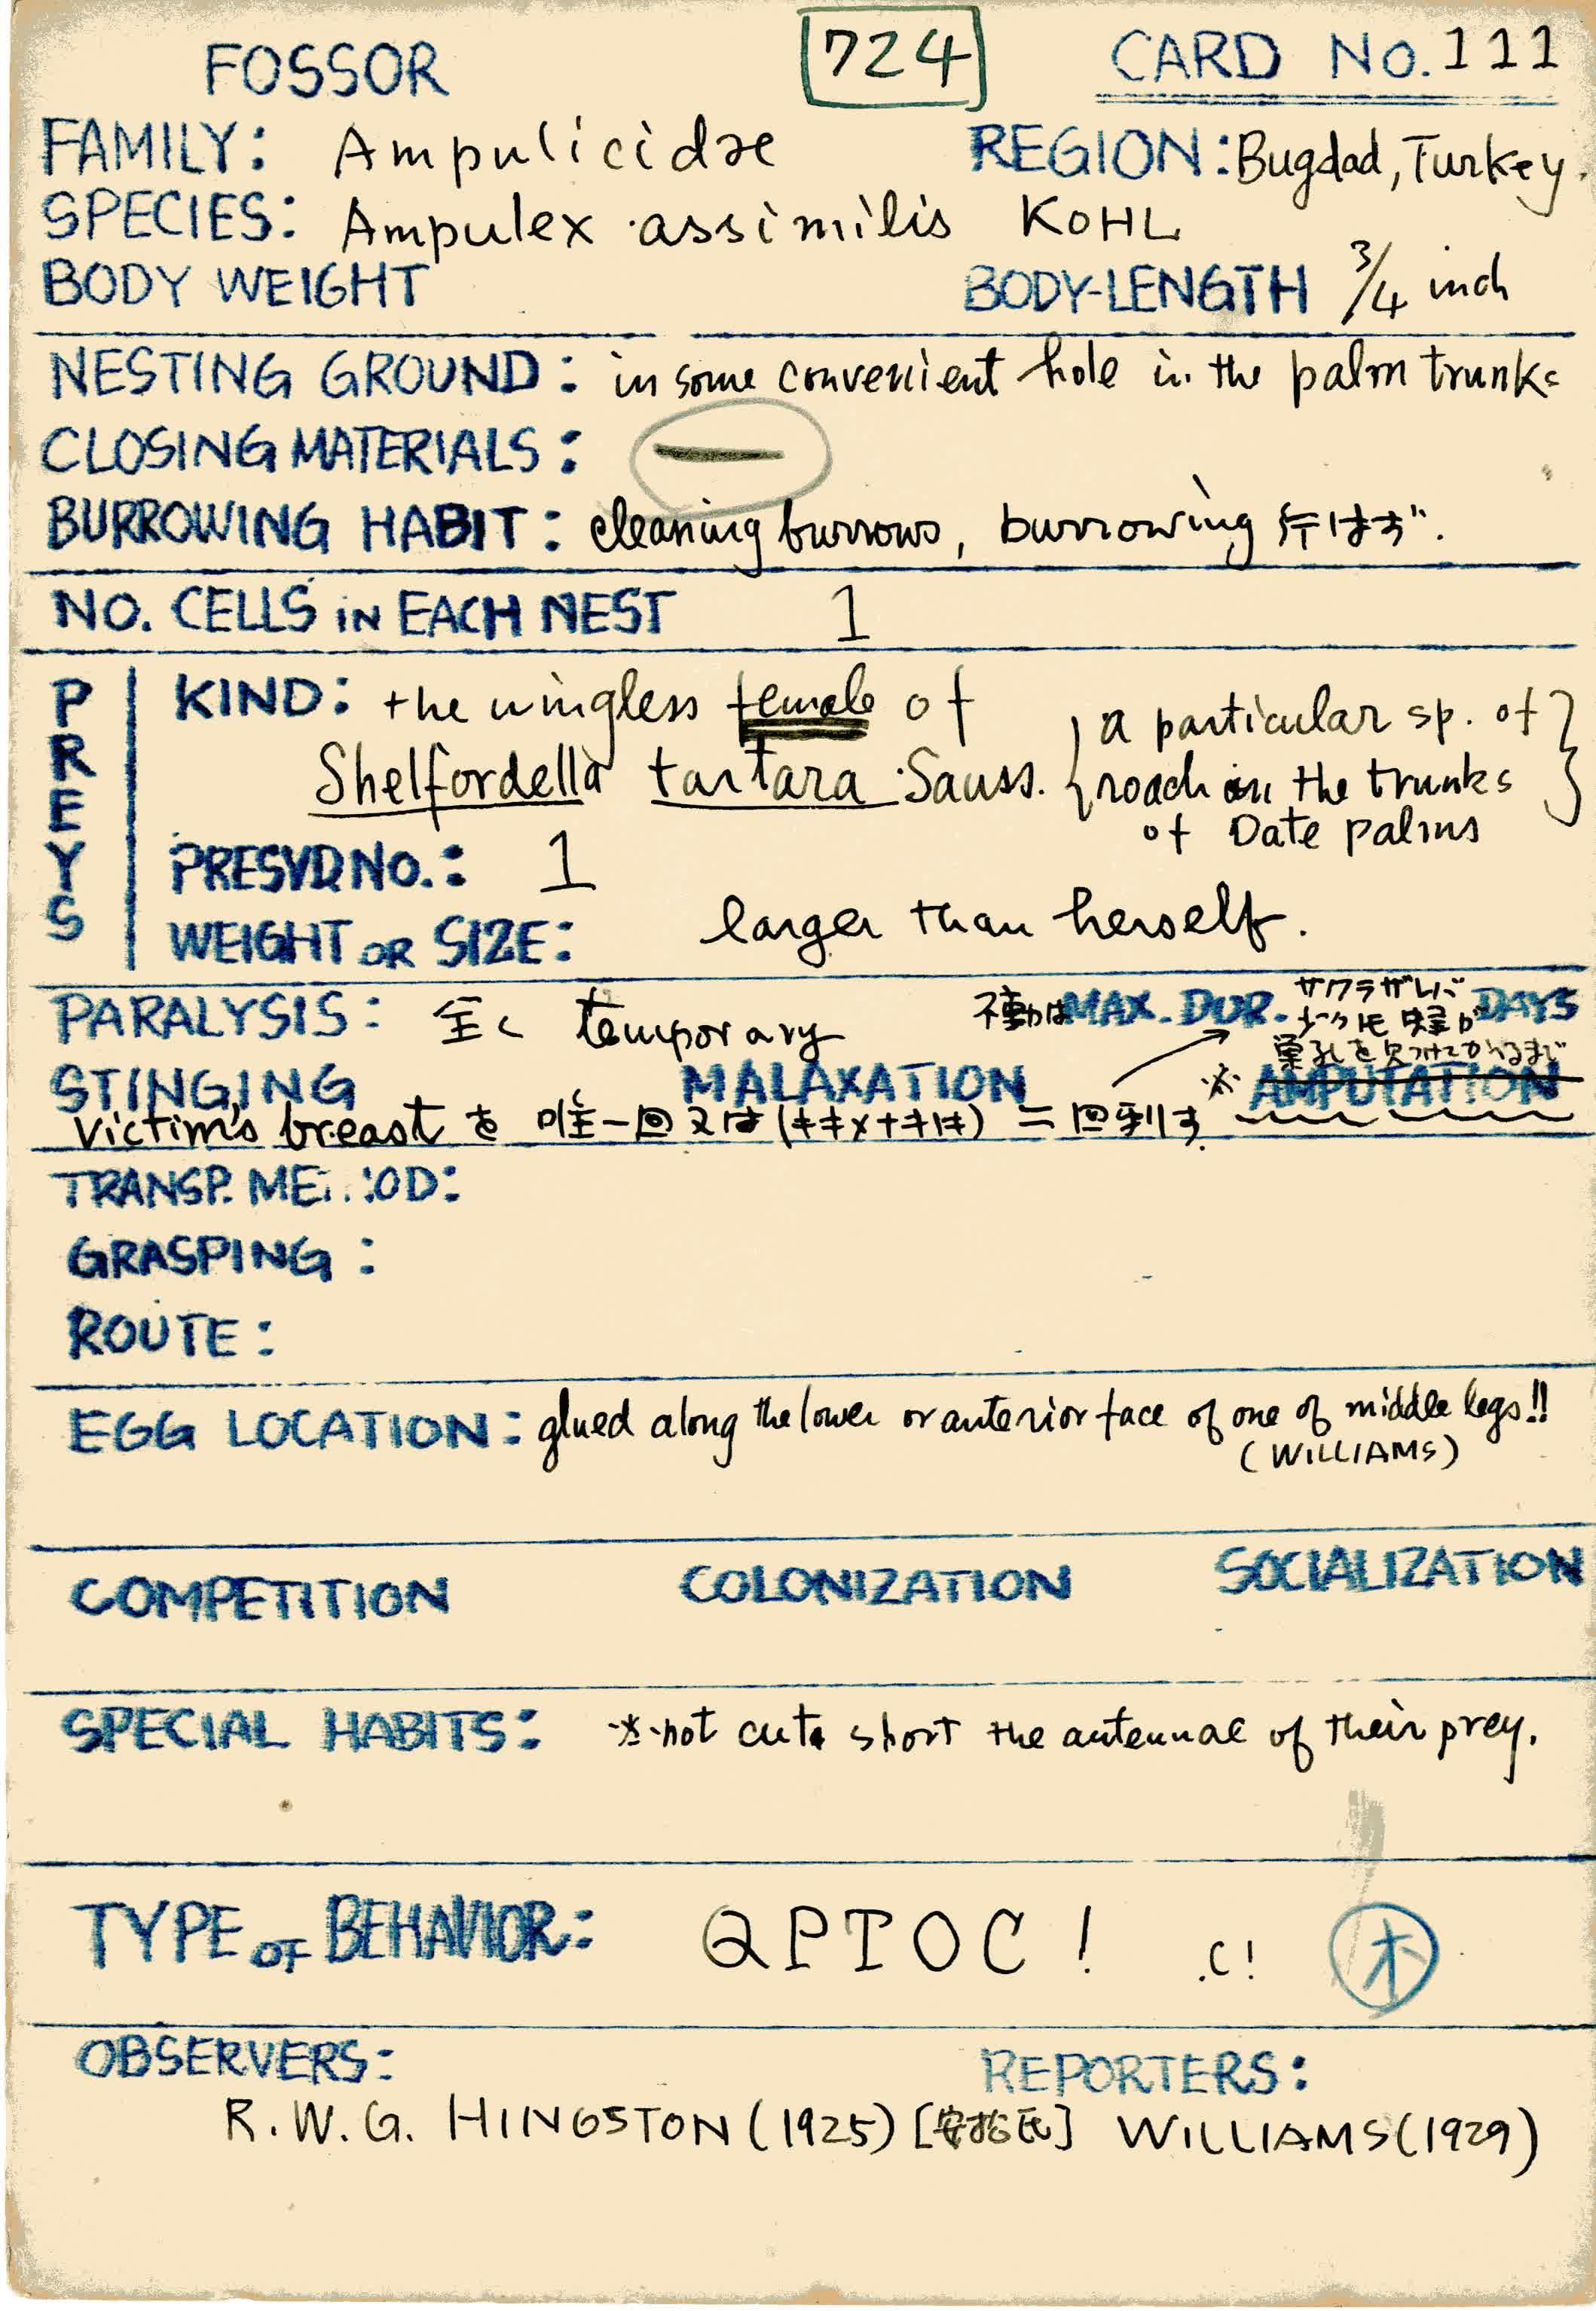 FOSSOR 724 CARD No. 111
FAMILY: Ampulicidae REGION: Bugdad, Turkey.
SPECIES: Ampulex assimilis KOHL
BODY WEIGHT BODY-LENGTH 3/4 inch
NESTING GROUND: in some convenient hole in the palm trunks
CLOSING MATERIALS: —
BURROWING HABIT: cleaning burrows, burrowing 行はず.
NO. CELLS iN EACH NEST 1
PREYS
KIND: the wingless female of
Shelfordella tartara Sauss. {a particular sp. of
roach on the trunks
of Date palms}
PRESVD NO.: 1
WEIGHT OR SIZE: larger than herself.
PARALYSIS: 全く temporary 不動は MAX. DUR. DAYS
STINGING MALAXATION ※ AMPUTATION
Victim's breast を唯一回又は(キキ×+キは)二回刺す.
TRANSP. ME OD:
GRASPING:
ROUTE:
EGG LOCATION: glued along the lower or anterior face of one of middle legs!!
(WILLIAMS)
COMPETITION COLONIZATION SOCIALIZATION
SPECIAL HABITS: ※ not cut short the antennae of their prey.
TYPE OF BEHAVIOR: QPTOC! .C! 木
OBSERVERS: REPORTERS:
R.W.G. HINGSTON (1925) [安松氏] WILLIAMS (1929)